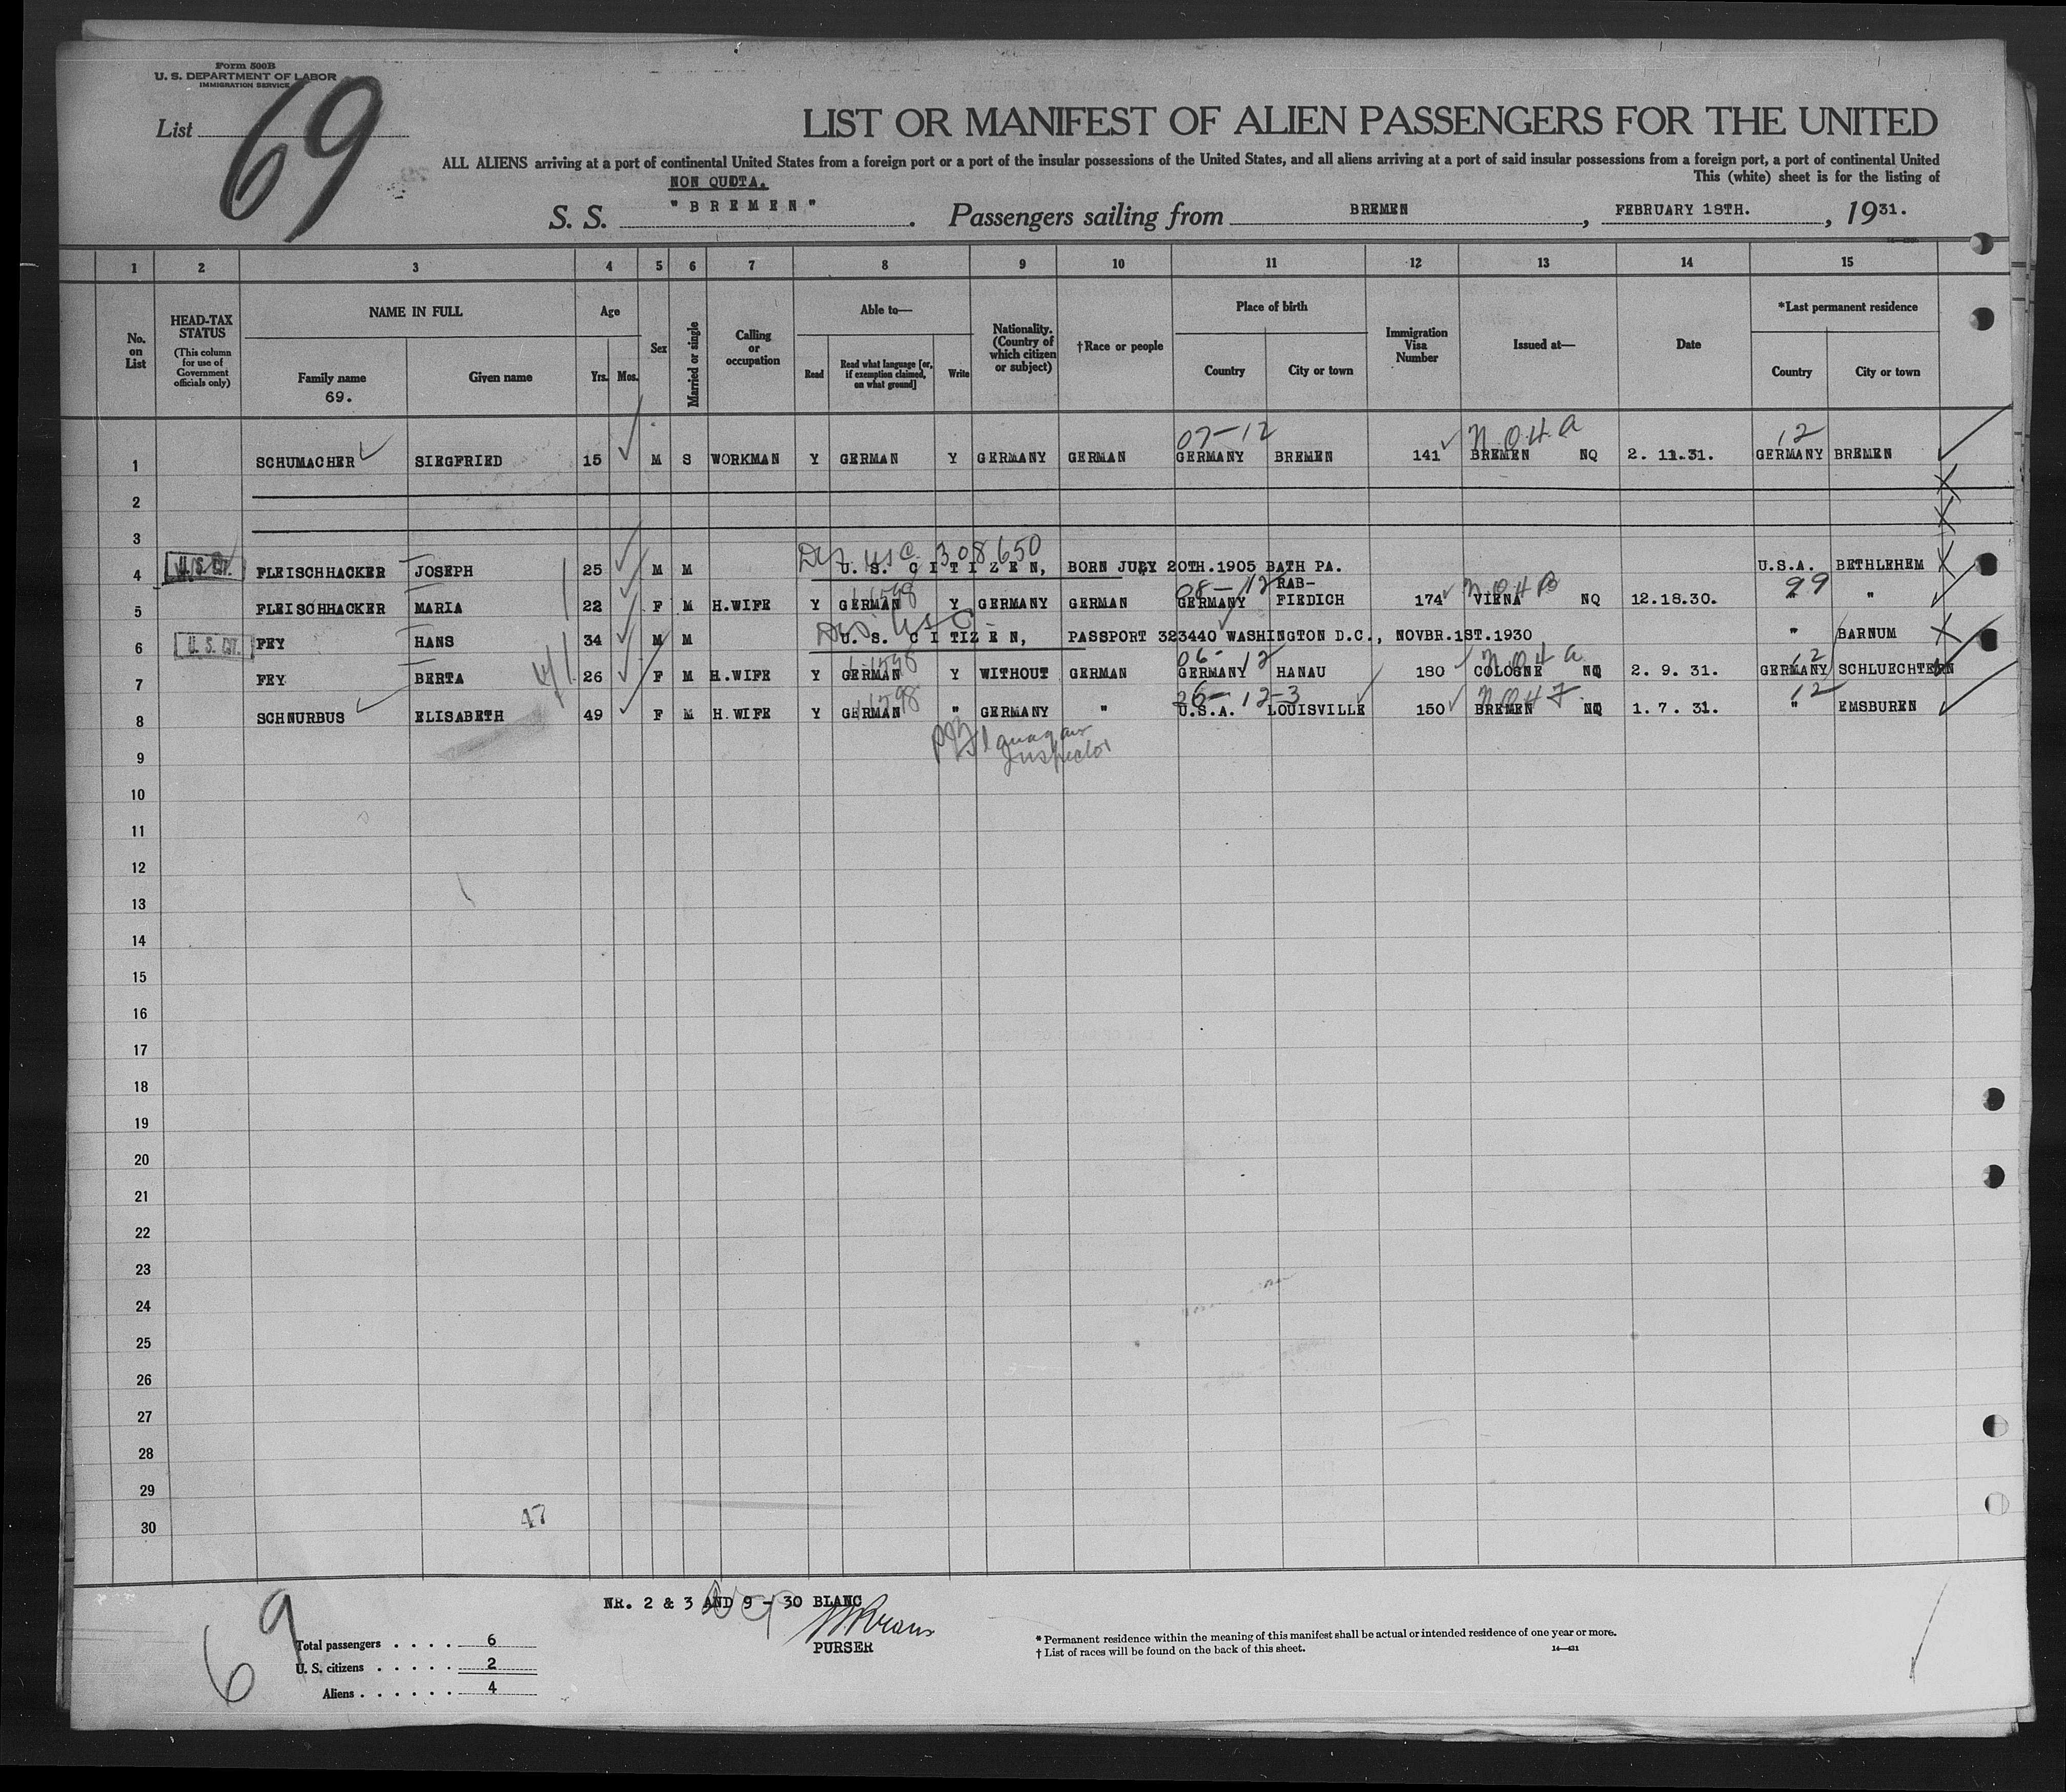 Form 500B
U. S. DEPARTMENT OF LABOR
IMMIGRATION SERVICE
List 69
LIST OR MANIFEST OF ALIEN PASSENGERS FOR THE UNITED
ALL ALIENS arriving at a port of continental United States from a foreign port or a port of the insular possessions of the United States, and all aliens arriving at a port of said insular possessions from a foreign port, a port of continental United
This (white) sheet is for the listing of
NON QUOTA.
S. S. "BREMEN". Passengers sailing from BREMEN, FEBRUARY 18TH., 1931.
1 2 3 4 5 6 7 8 9 10 11 12 13 14 15
No. on List
HEAD-TAX STATUS (This column for use of Government officials only)
NAME IN FULL
Family name
69.
Given name
Age
Yrs. Mos.
Sex
Married or single
Calling or occupation
Able to—
Read
Read what language [or, if exemption claimed, on what ground]
Write
Nationality. (Country of which citizen or subject)
†Race or people
Place of birth
Country
City or town
Immigration Visa Number
Issued at—
Date
*Last permanent residence
Country
City or town
07-12 N.O.4.a 12
1 SCHUMACHER SIEGFRIED 15 M S WORKMAN Y GERMAN Y GERMANY GERMAN GERMANY BREMEN 141 BREMEN NQ 2. 11.31. GERMANY BREMEN
2
3
USC 308650
4 U. S. CIT. FLEISCHHACKER JOSEPH 25 M M U. S. CITIZEN, BORN JULY 20TH.1905 BATH PA. U.S.A. BETHLEHEM
08-12 RAB- 99
5 FLEISCHHACKER MARIA 22 F M H.WIFE Y GERMAN Y GERMANY GERMAN GERMANY FIEDICH 174 VIENA NQ 12.18.30. " "
USC
6 U. S. CIT. FEY HANS 34 M M U. S. CITIZEN, PASSPORT 323440 WASHINGTON D.C., NOVBR.1ST.1930 " BARNUM
06-12 N.O.4.a 12
7 FEY BERTA 26 F M H.WIFE Y GERMAN Y WITHOUT GERMAN GERMANY HANAU 180 COLOGNE NQ 2. 9. 31. GERMANY SCHLUECHTERN
12-3 12
8 SCHNURBUS ELISABETH 49 F M H.WIFE Y GERMAN " GERMANY " U.S.A. LOUISVILLE 150 BREMEN NQ 1. 7. 31. " EMSBUREN
Inspector
9
10
11
12
13
14
15
16
17
18
19
20
21
22
23
24
25
26
27
28
29
30
47
69
NR. 2 & 3 AND 9 - 30 BLANC
PURSER
Total passengers . . . . 6
U. S. citizens . . . . . 2
Aliens . . . . . . 4
* Permanent residence within the meaning of this manifest shall be actual or intended residence of one year or more.
† List of races will be found on the back of this sheet.
14—431